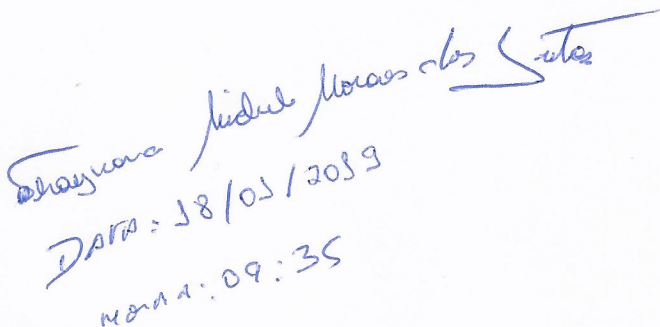 Thaynara Michele Moraes dos Santos
DATA: 18/01/2019
HORA: 09:35